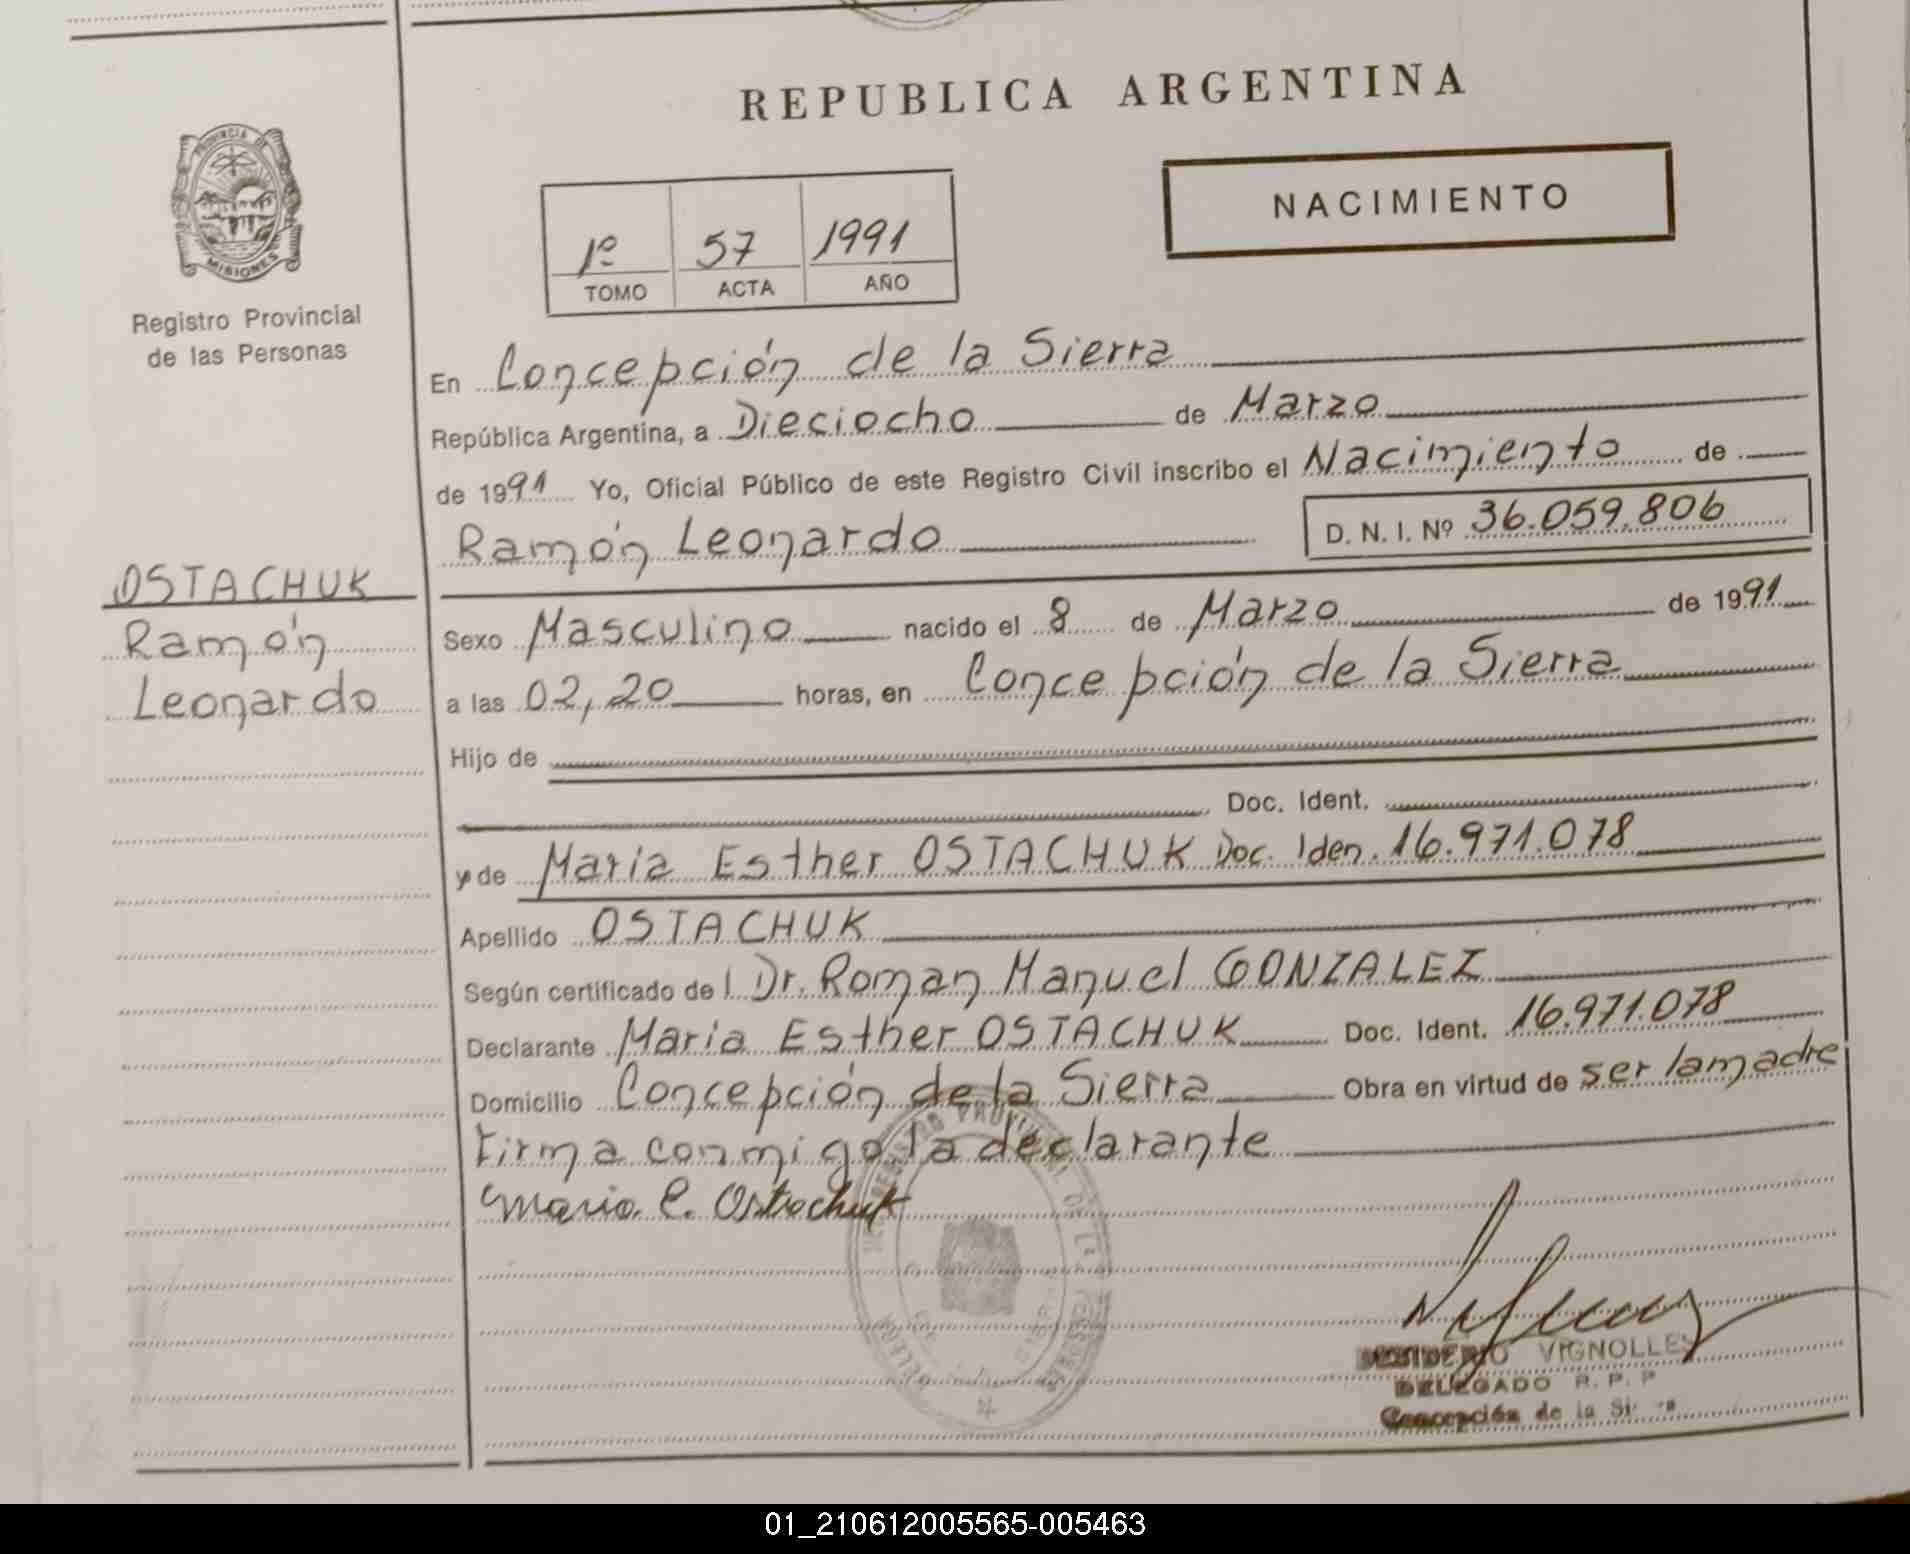 REPUBLICA ARGENTINA
PROVINCIA DE
MISIONES
Registro Provincial
de las Personas
NACIMIENTO
1º 57 1991
TOMO ACTA AÑO
En Concepción de la Sierra
República Argentina, a Dieciocho de Marzo
de 1991 Yo, Oficial Público de este Registro Civil inscribo el Nacimiento de
Ramón Leonardo D. N. I. Nº 36.059.806
OSTACHUK
Ramón
Leonardo
Sexo Masculino nacido el 8 de Marzo de 1991
a las 02,20 horas, en Concepción de la Sierra
Hijo de
Doc. Ident.
y de Maria Esther OSTACHUK Doc. Iden. 16.971.078
Apellido OSTACHUK
Según certificado de l Dr. Roman Manuel GONZALEZ
Declarante Maria Esther OSTACHUK Doc. Ident. 16.971.078
Domicilio Concepción de la Sierra Obra en virtud de ser la madre
Firma conmigo la declarante
Maria E. Ostachuk
DESIDERIO VIGNOLLES
DELEGADO R. P. P
Concepción de la Si
01_210612005565-005463